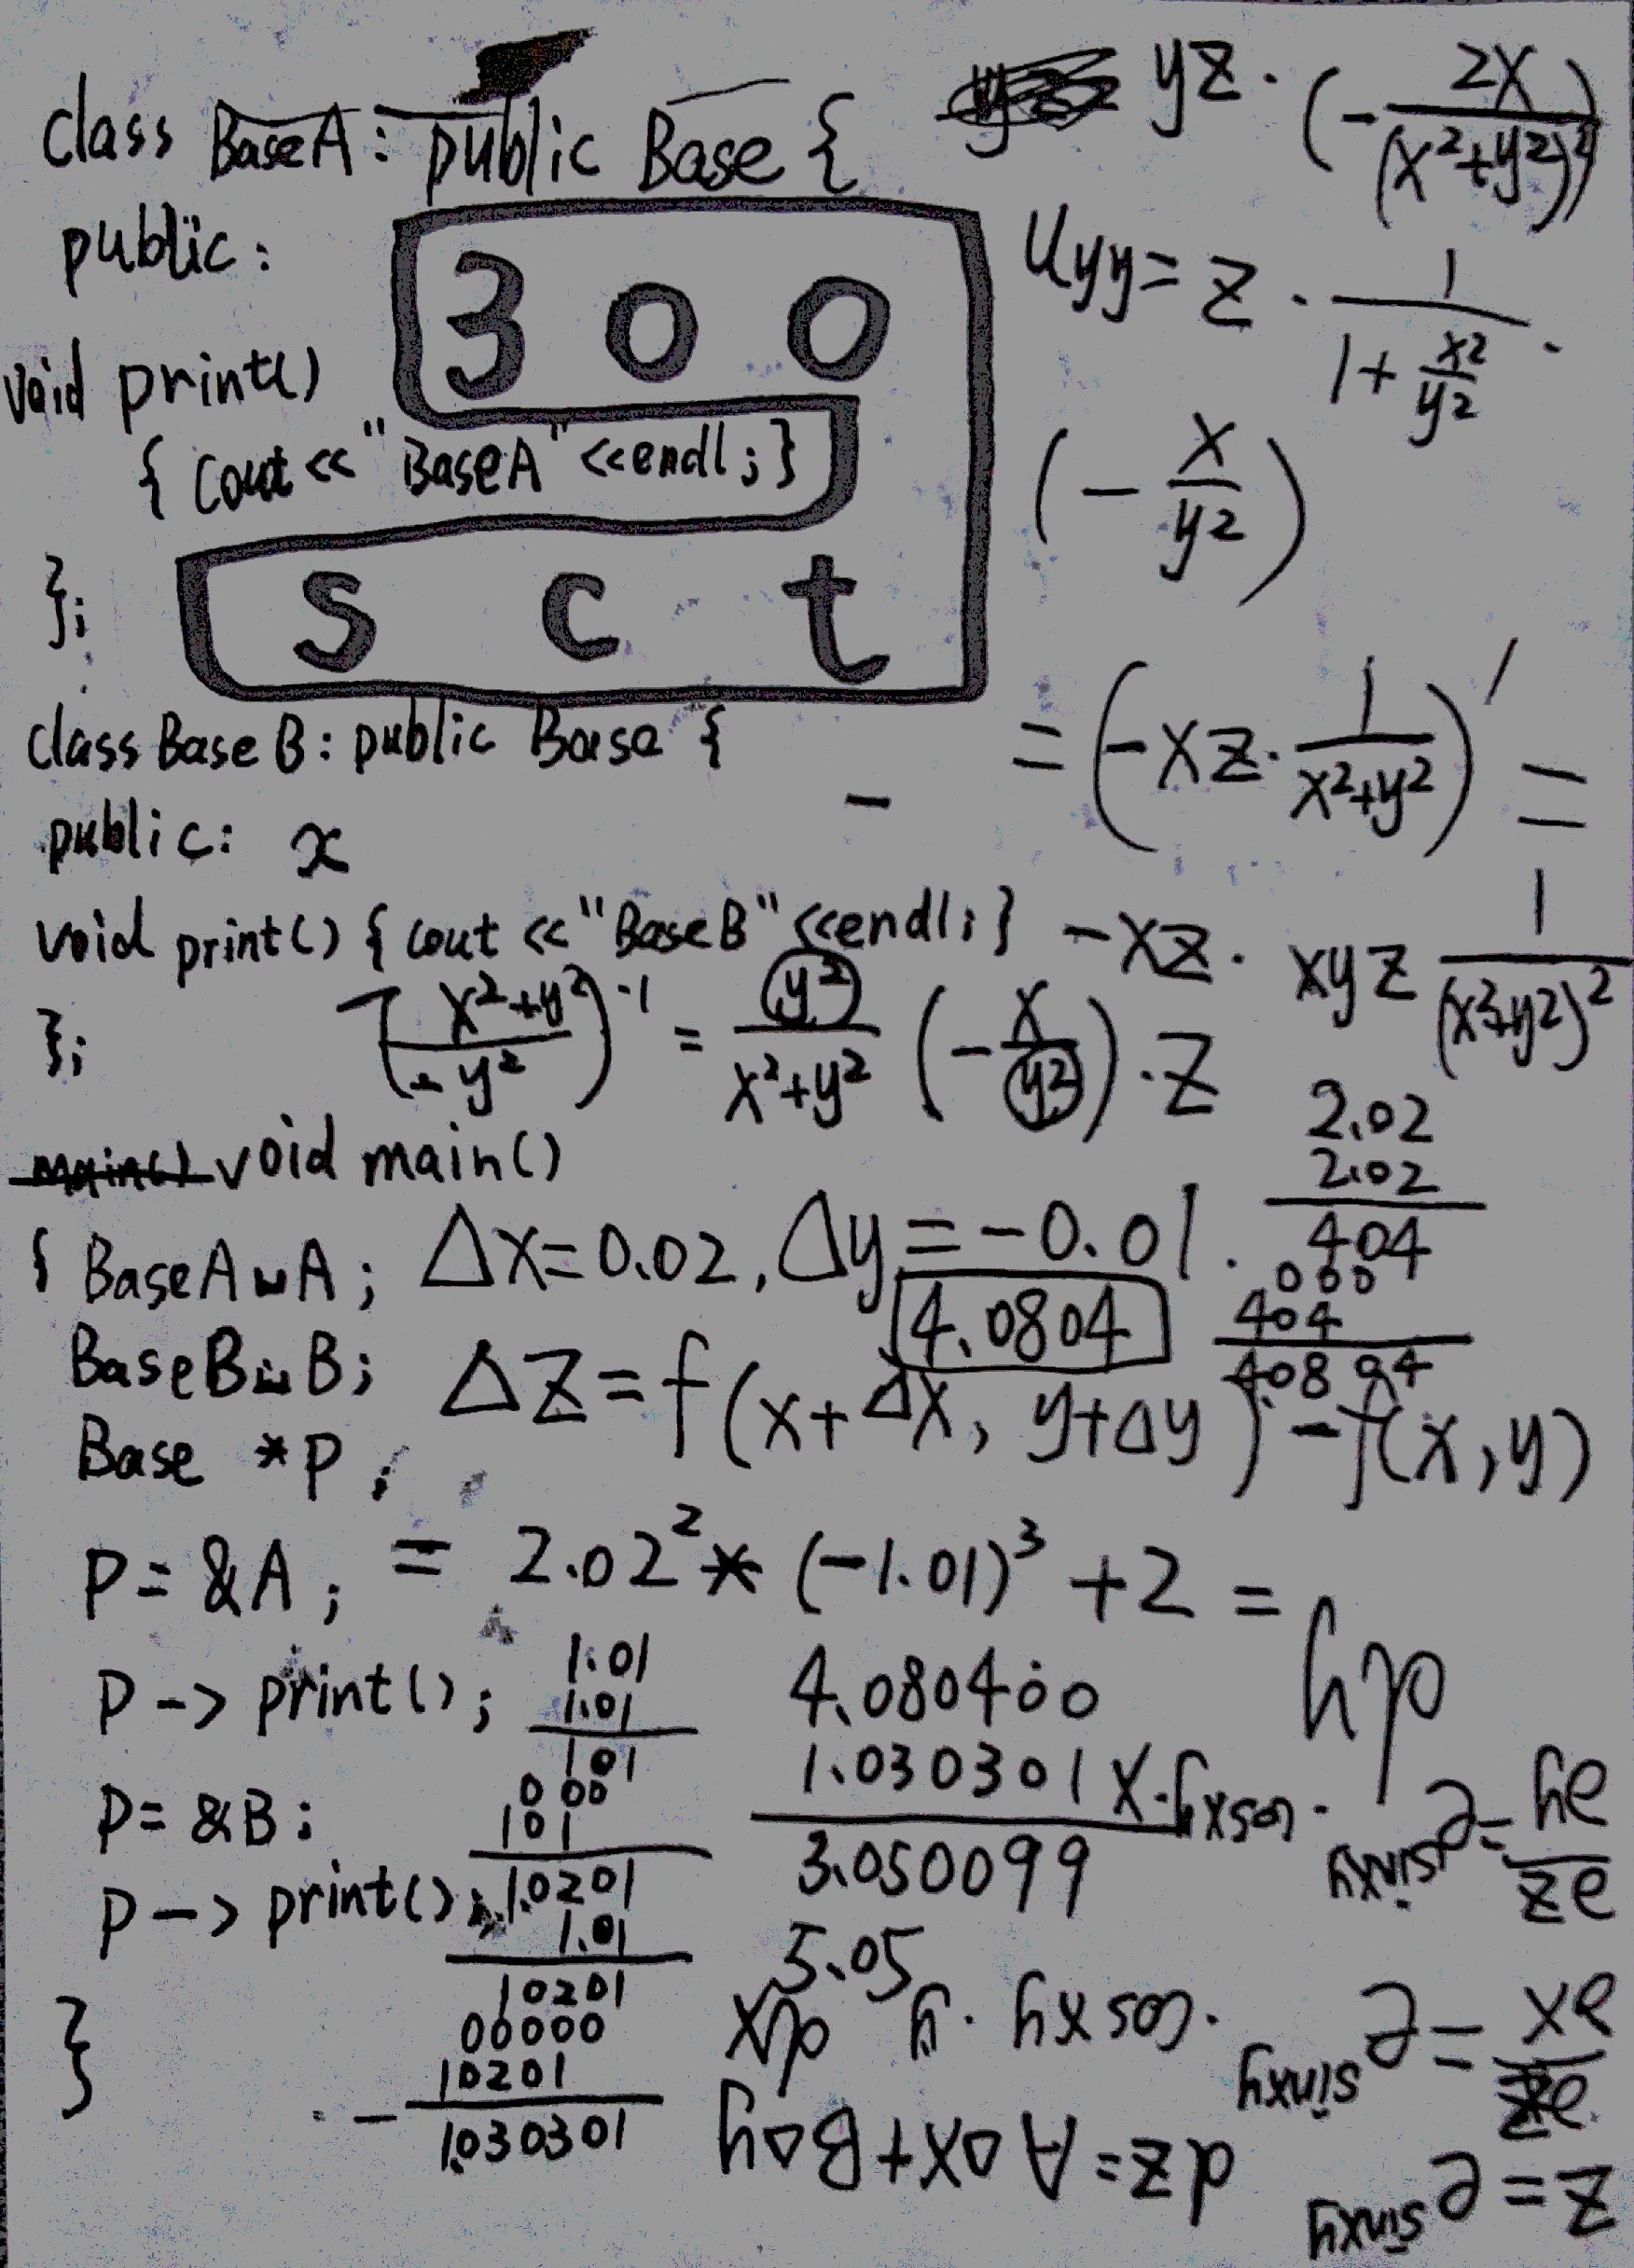 class BaseA: public Base {
public:
void print()
{ cout << "BaseA" <<endl; }
};
300
s c t
class Base B: public Base {
public: x
void print() { cout << "Base B" <<endl; }
};
void main()
{ BaseA A;
BaseB B;
Base *p;
P = &A;
P -> print();
P = &B;
P -> print();
}
yz · (- 2x/(x²+y²)²)
Uyy = z · 1/(1 + x²/y²) ·
(- x/y²)
= (-xz · 1/(x²+y²))' =
-xz · xyz 1/(x²+y²)²
((x²+y²)/y²)-1 = y²/(x²+y²) (- x/y²) · z
Δx=0.02, Δy=-0.01.
4.0804
Δz = f(x+Δx, y+Δy) - f(x,y)
= 2.02² * (-1.01)³ + 2 =
2.02
2.02
404
000
404
4.0804
1.01
1.01
101
000
101
1.0201
1.01
10201
00000
10201
1.030301
4.080400
1.030301
3.050099
5.05
z = e^sinxy
∂z/∂x = e^sinxy · cos xy · y dx
∂z/∂y = e^sinxy · cosxy · x dy
dz = AΔx + BΔy